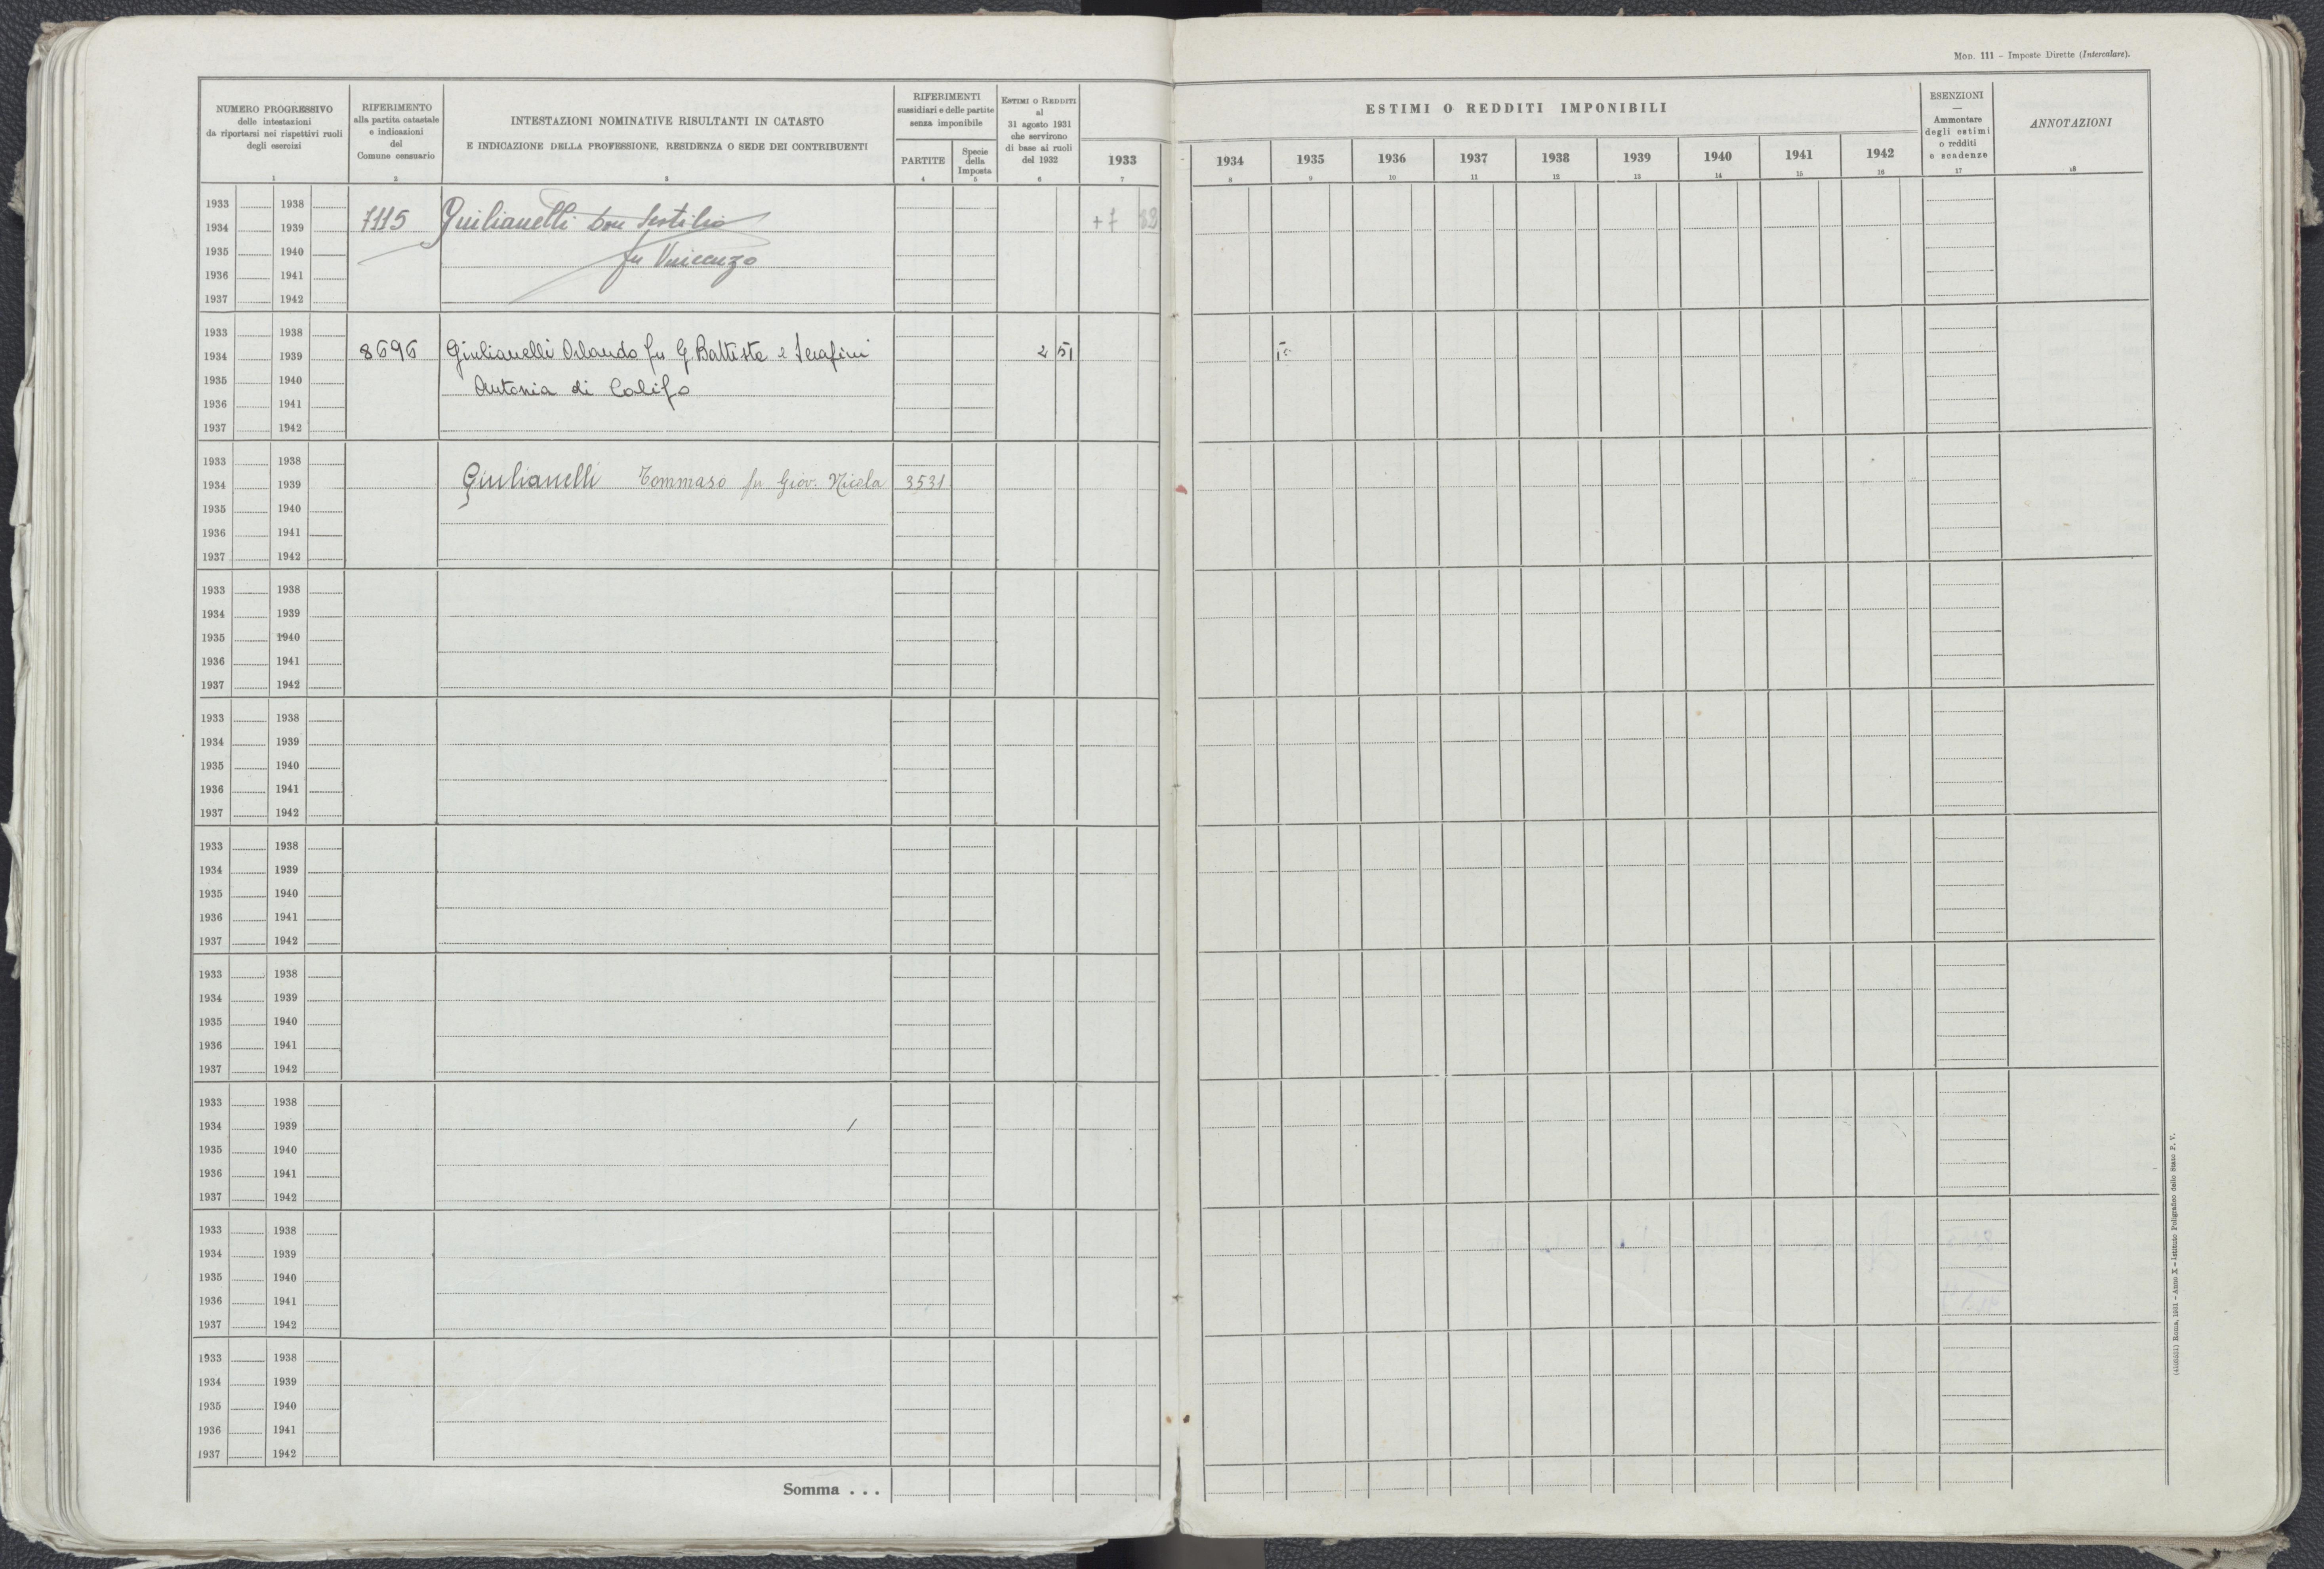 Mod. 111 – Imposte Dirette (Intercalare).
NUMERO PROGRESSIVO
delle intestazioni
da riportarsi nei rispettivi ruoli
degli esercizi
1
RIFERIMENTO
alla partita catastale
e indicazioni
del
Comune censuario
2
INTESTAZIONI NOMINATIVE RISULTANTI IN CATASTO
E INDICAZIONE DELLA PROFESSIONE, RESIDENZA O SEDE DEI CONTRIBUENTI
3
RIFERIMENTI
sussidiari e delle partite
senza imponibile
PARTITE
4
Specie
della
Imposta
5
Estimi o Redditi
al
31 agosto 1931
che servirono
di base ai ruoli
del 1932
6
ESTIMI O REDDITI IMPONIBILI
1933 1934 1935 1936 1937 1938 1939 1940 1941 1942
7 8 9 10 11 12 13 14 15 16
ESENZIONI
—
Ammontare
degli estimi
o redditi
e scadenze
17
ANNOTAZIONI
18
1933 1938
1934 1939 7115 Giulianelli Don +7 82
1935 1940 fu Vincenzo
1936 1941
1937 1942
1933 1938
1934 1939 8696 Giulianelli Orlando fu G. Battista e Serafini 2 51
1935 1940 Antonia di Califo
1936 1941
1937 1942
1933 1938
1934 1939 Giulianelli Tommaso fu Giov. Nicola 3531
1935 1940
1936 1941
1937 1942
1933 1938
1934 1939
1935 1940
1936 1941
1937 1942
1933 1938
1934 1939
1935 1940
1936 1941
1937 1942
1933 1938
1934 1939
1935 1940
1936 1941
1937 1942
1933 1938
1934 1939
1935 1940
1936 1941
1937 1942
1933 1938
1934 1939
1935 1940
1936 1941
1937 1942
1933 1938
1934 1939
1935 1940
1936 1941
1937 1942
1933 1938
1934 1939
1935 1940
1936 1941
1937 1942
Somma . . .
Roma, 1931 – Anno X – Istituto Poligrafico dello Stato P. V.